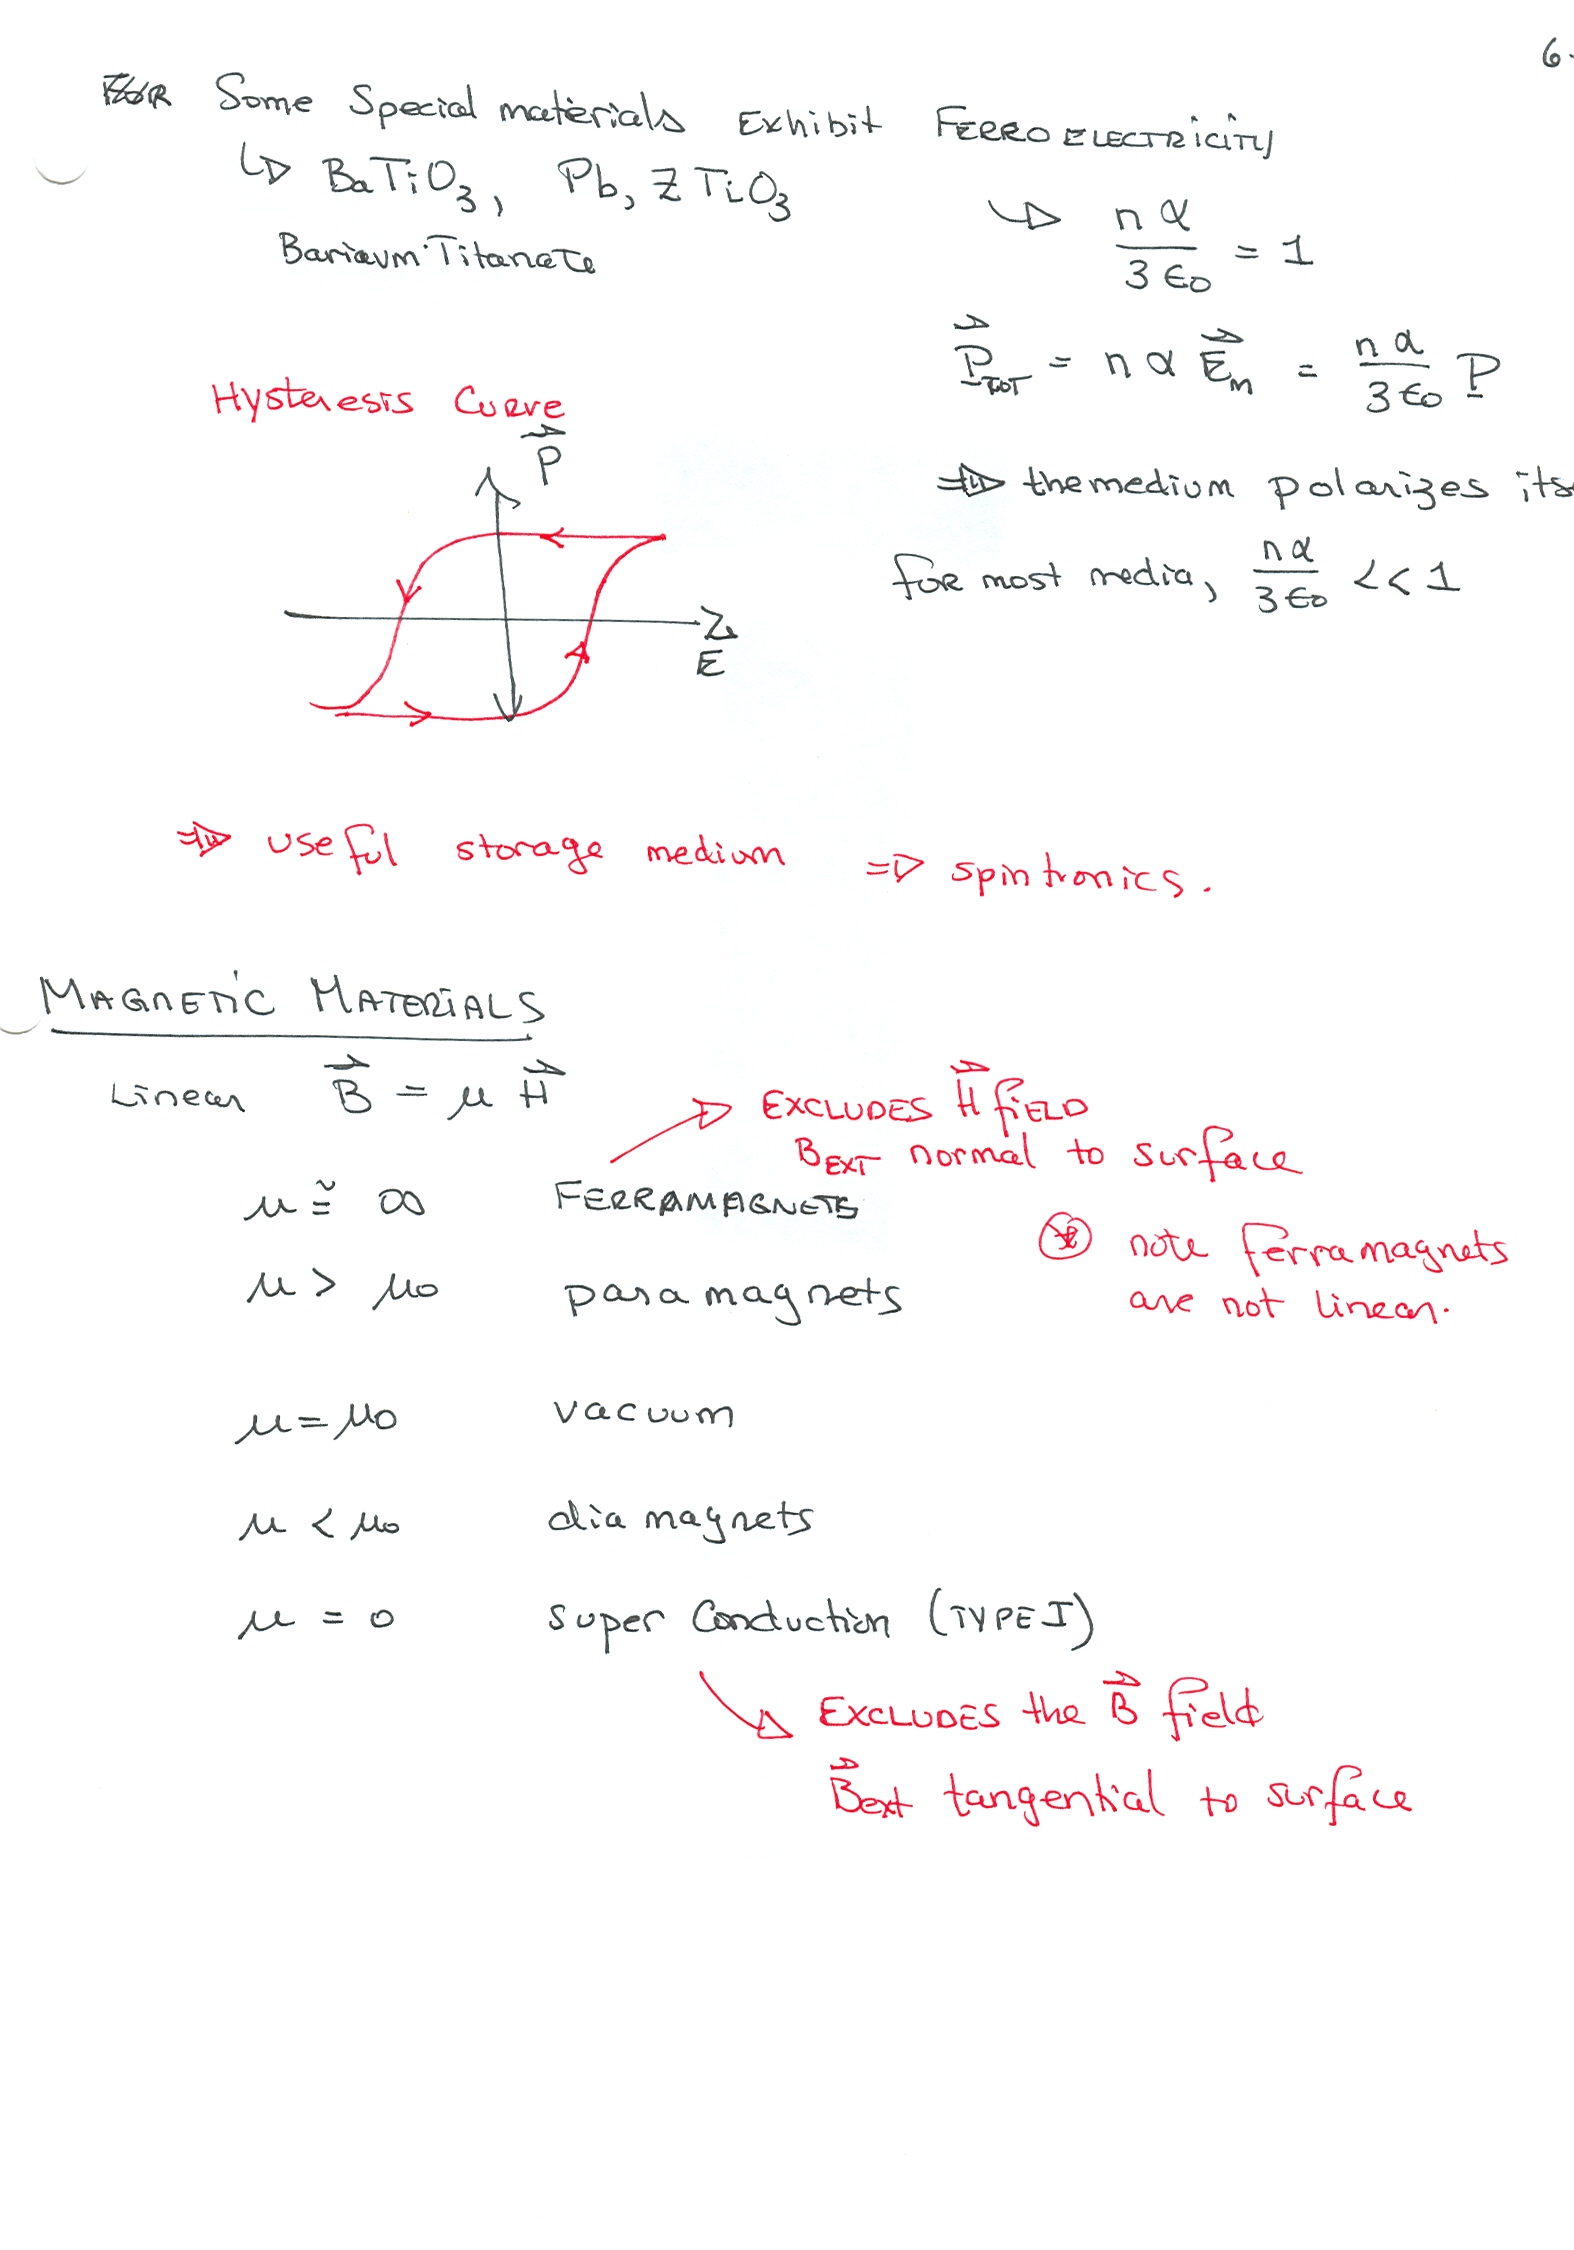 6.
FOR Some Special materials Exhibit FERROELECTRICITY
↳ BaTiO₃, Pb, Z TiO₃
Bariaum Titanate
↳ nα / 3ε₀ = 1
P⃗_TOT = nα E⃗_m = nα / 3ε₀ P
Hysteresis Curve
P⃗
⇒ the medium polarizes its
for most media, nα / 3ε₀ << 1
E
⇒ useful storage medium ⇒ spintronics.
MAGNETIC MATERIALS
Linear B⃗ = μ H⃗
→ EXCLUDES H⃗ FIELD
B_EXT normal to surface
μ ≅ ∞ FERRAMAGNETS
⊛ note ferramagnets
are not linear.
μ > μ₀ paramagnets
μ = μ₀ vacuum
μ < μ₀ diamagnets
μ = 0 super Conduction (TYPE I)
↳ EXCLUDES the B⃗ field
B⃗ext tangential to surface